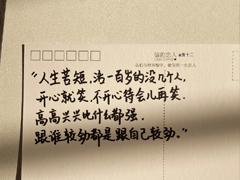 “人生苦短，活一百岁的没几个人，
开心就笑，不开心待会儿再笑，
高高兴兴比什么都强，
跟谁较劲都是跟自己较劲。”